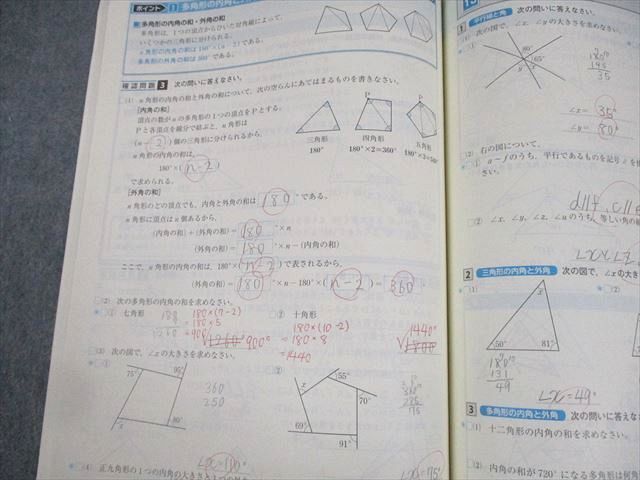 ポイント 1 多角形の内角と
多角形の内角の和・外角の和
多角形は，1つの頂点からひいた対角線によって，
いくつかの三角形に分けられる。
n角形の内角の和は180°×(n−2)である。
多角形の外角の和は360°である。
確認問題 3 次の問いに答えなさい。
(1) n角形の内角の和と外角の和について，次の空らんにあてはまるものを書きなさい。
[内角の和]
頂点の数がnの多角形の1つの頂点をPとする。
Pと各頂点を線分で結ぶと，n角形は
(n− 2 )個の三角形に分けられるから，
n角形の内角の和は，
180°×(n-2)
で求められる。
P
P
三角形
四角形
五角形
180°
180°×2=360°
180°×3=
[外角の和]
n角形のどの頂点でも，内角と外角の和は 180 °である。
n角形に頂点はn個あるから，
(内角の和)+(外角の和)= 180 °×n
(外角の和)= 180 °×n−(内角の和)
ここで，n角形の内角の和は，180°×(n-2)で表されるから，
(外角の和)= 180 °×n−180°×(n-2)= 360
(2) 次の多角形の内角の和を求めなさい。
① 七角形
180×(7-2)
=180×5
=900
1260° 900°
② 十角形
180×(10-2)
=180×8
=1440
1440°
1800°
(3) 次の図で，∠xの大きさを求めなさい。
①
75°
95°
80°
x
360
250
∠x=110°
②
55°
x
70°
69°
91°
∠x=75°
(4) 正九角形の1つの内角の大きさと1つの外
1 平行線と角 次の問いに答えなさい。
(1) 次の図で，∠x，∠yの大きさを求めなさい。
80°
65°
x
y
180
145
35
∠x= 35°
∠y= 80°
(2) 右の図について，
① a〜fのうち，平行であるものを記号
さい。
d∥f, c∥e
② ∠x，∠y，∠z，∠uのうち，等しい角の
∠x, ∠z
2 三角形の内角と外角 次の図で，∠xの大きさ
(1)
x
50°
81°
180
131
49
∠x=49°
3 多角形の内角と外角 次の問いに答えなさい。
(1) 十二角形の内角の和を求めなさい。
(2) 内角の和が720°になる多角形は何角